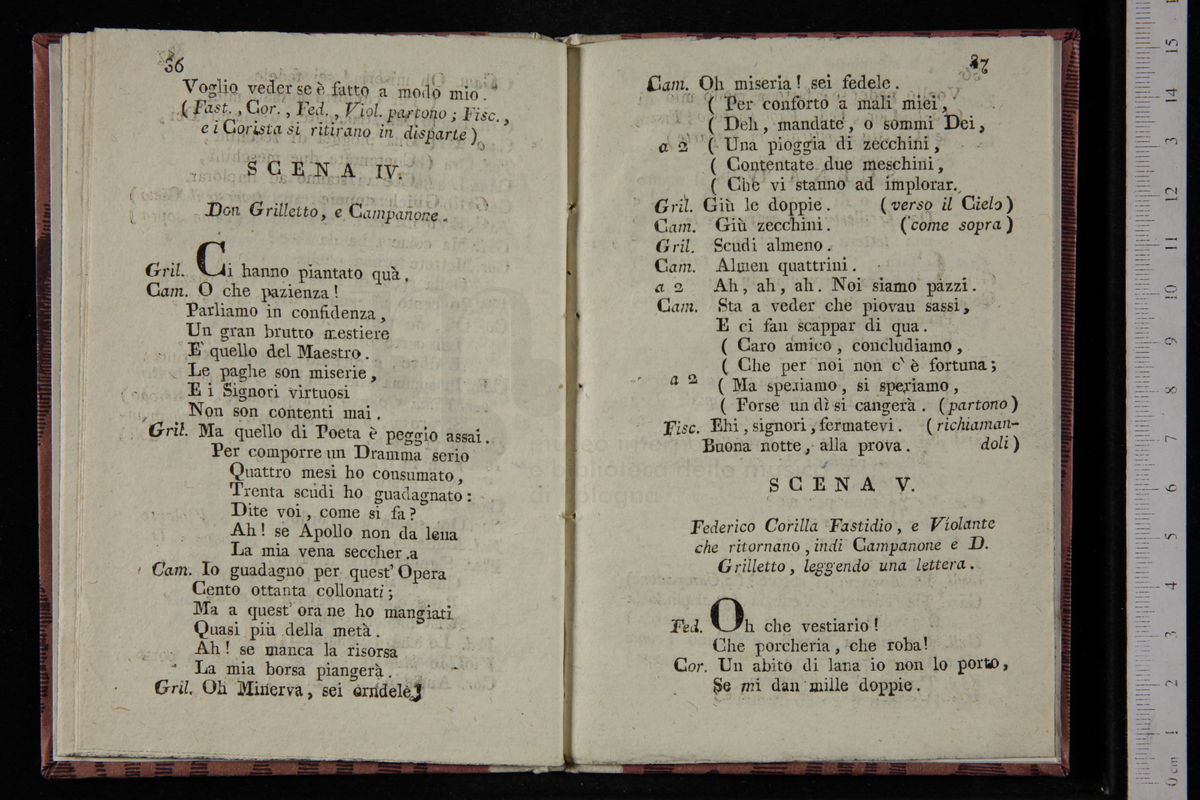 36
Voglio veder se è fatto a modo mio.
(Fast., Cor., Fed., Viol. partono; Fisc.,
e i Corista si ritirano in disparte)
SCENA IV.
Don Grilletto, e Campanone.
Gril. Ci hanno piantato quà.
Cam. O che pazienza!
Parliamo in confidenza,
Un gran brutto mestiere
E' quello del Maestro.
Le paghe son miserie,
E i Signori virtuosi
Non son contenti mai.
Gril. Ma quello di Poeta è peggio assai.
Per comporre un Dramma serio
Quattro mesi ho consumato,
Trenta scudi ho guadagnato:
Dite voi, come si fa?
Ah! se Apollo non da lena
La mia vena seccher.a
Cam. Io guadagno per quest' Opera
Cento ottanta collonati;
Ma a quest' ora ne ho mangiati
Quasi più della metà.
Ah! se manca la risorsa
La mia borsa piangerà.
Gril. Oh Minerva, sei
37
Cam. Oh miseria! sei fedele.
( Per conforto a mali miei,
( Deh, mandate, o sommi Dei,
a 2 ( Una pioggia di zecchini,
( Contentate due meschini,
( Che vi stanno ad implorar.
Gril. Giù le doppie. (verso il Cielo)
Cam. Giù zecchini. (come sopra)
Gril. Scudi almeno.
Cam. Almen quattrini.
a 2 Ah, ah, ah. Noi siamo pazzi.
Cam. Sta a veder che piovan sassi,
E ci fan scappar di qua.
( Caro amico, concludiamo,
( Che per noi non c' è fortuna;
a 2 ( Ma speriamo, si speriamo,
( Forse un dì si cangerà. (partono)
Fisc. Ehi, signori, fermatevi. (richiaman-
Buona notte, alla prova. doli)
SCENA V.
Federico Corilla Fastidio, e Violante
che ritornano, indi Campanone e D.
Grilletto, leggendo una lettera.
Fed. Oh che vestiario!
Che porcheria, che roba!
Cor. Un abito di lana io non lo porto,
Se mi dan mille doppie.
museo
e biblioteca della musica
di bologna
0 cm 1 2 3 4 5 6 7 8 9 10 11 12 13 14 15